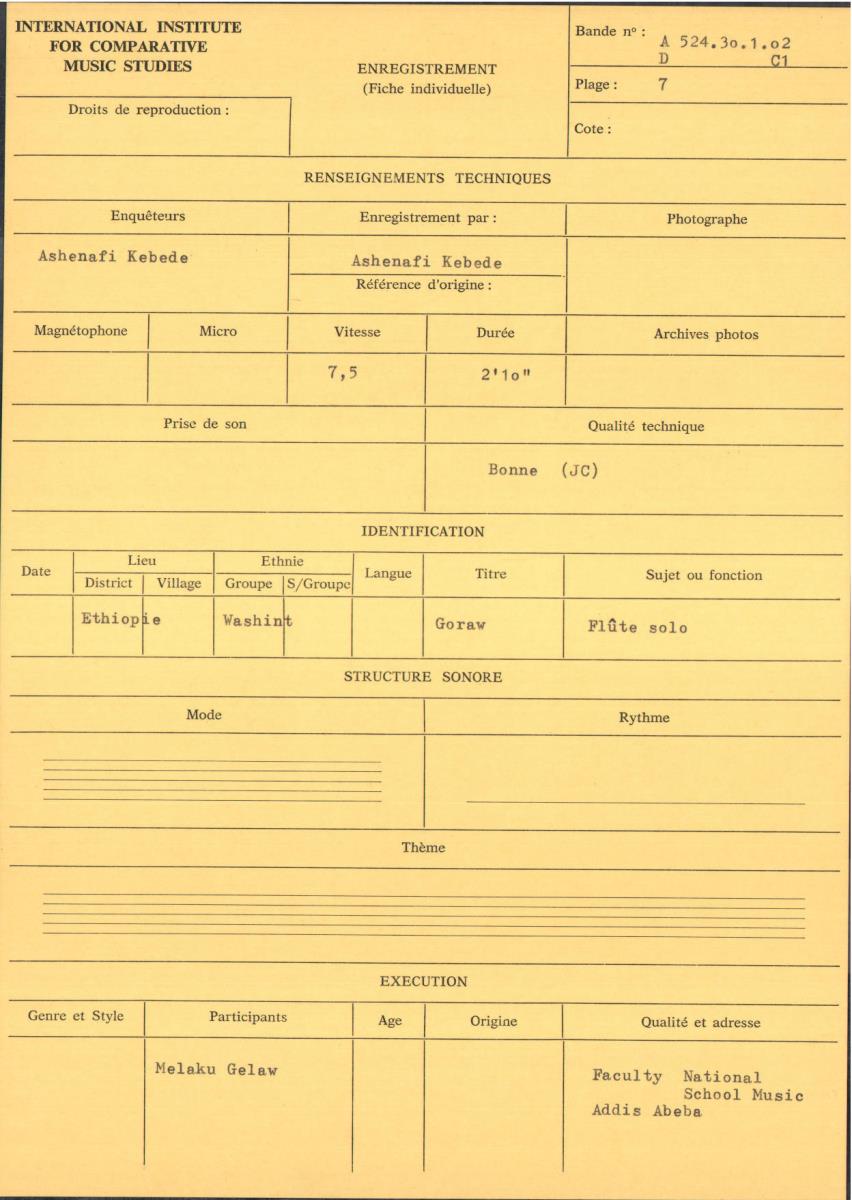 INTERNATIONAL INSTITUTE
FOR COMPARATIVE
MUSIC STUDIES
Droits de reproduction :
ENREGISTREMENT
(Fiche individuelle)
Bande nº :
A 524.3o.1.o2
D C1
Plage : 7
Cote :
RENSEIGNEMENTS TECHNIQUES
Enquêteurs
Enregistrement par :
Photographe
Ashenafi Kebede
Ashenafi Kebede
Référence d'origine :
Magnétophone
Micro
Vitesse
Durée
Archives photos
7,5
2'1o"
Prise de son
Qualité technique
Bonne (JC)
IDENTIFICATION
Date
Lieu
District
Village
Ethnie
Groupe
S/Groupe
Langue
Titre
Sujet ou fonction
Ethiopie
Washint
Goraw
Flûte solo
STRUCTURE SONORE
Mode
Rythme
Thème
EXECUTION
Genre et Style
Participants
Age
Origine
Qualité et adresse
Melaku Gelaw
Faculty National
School Music
Addis Abeba